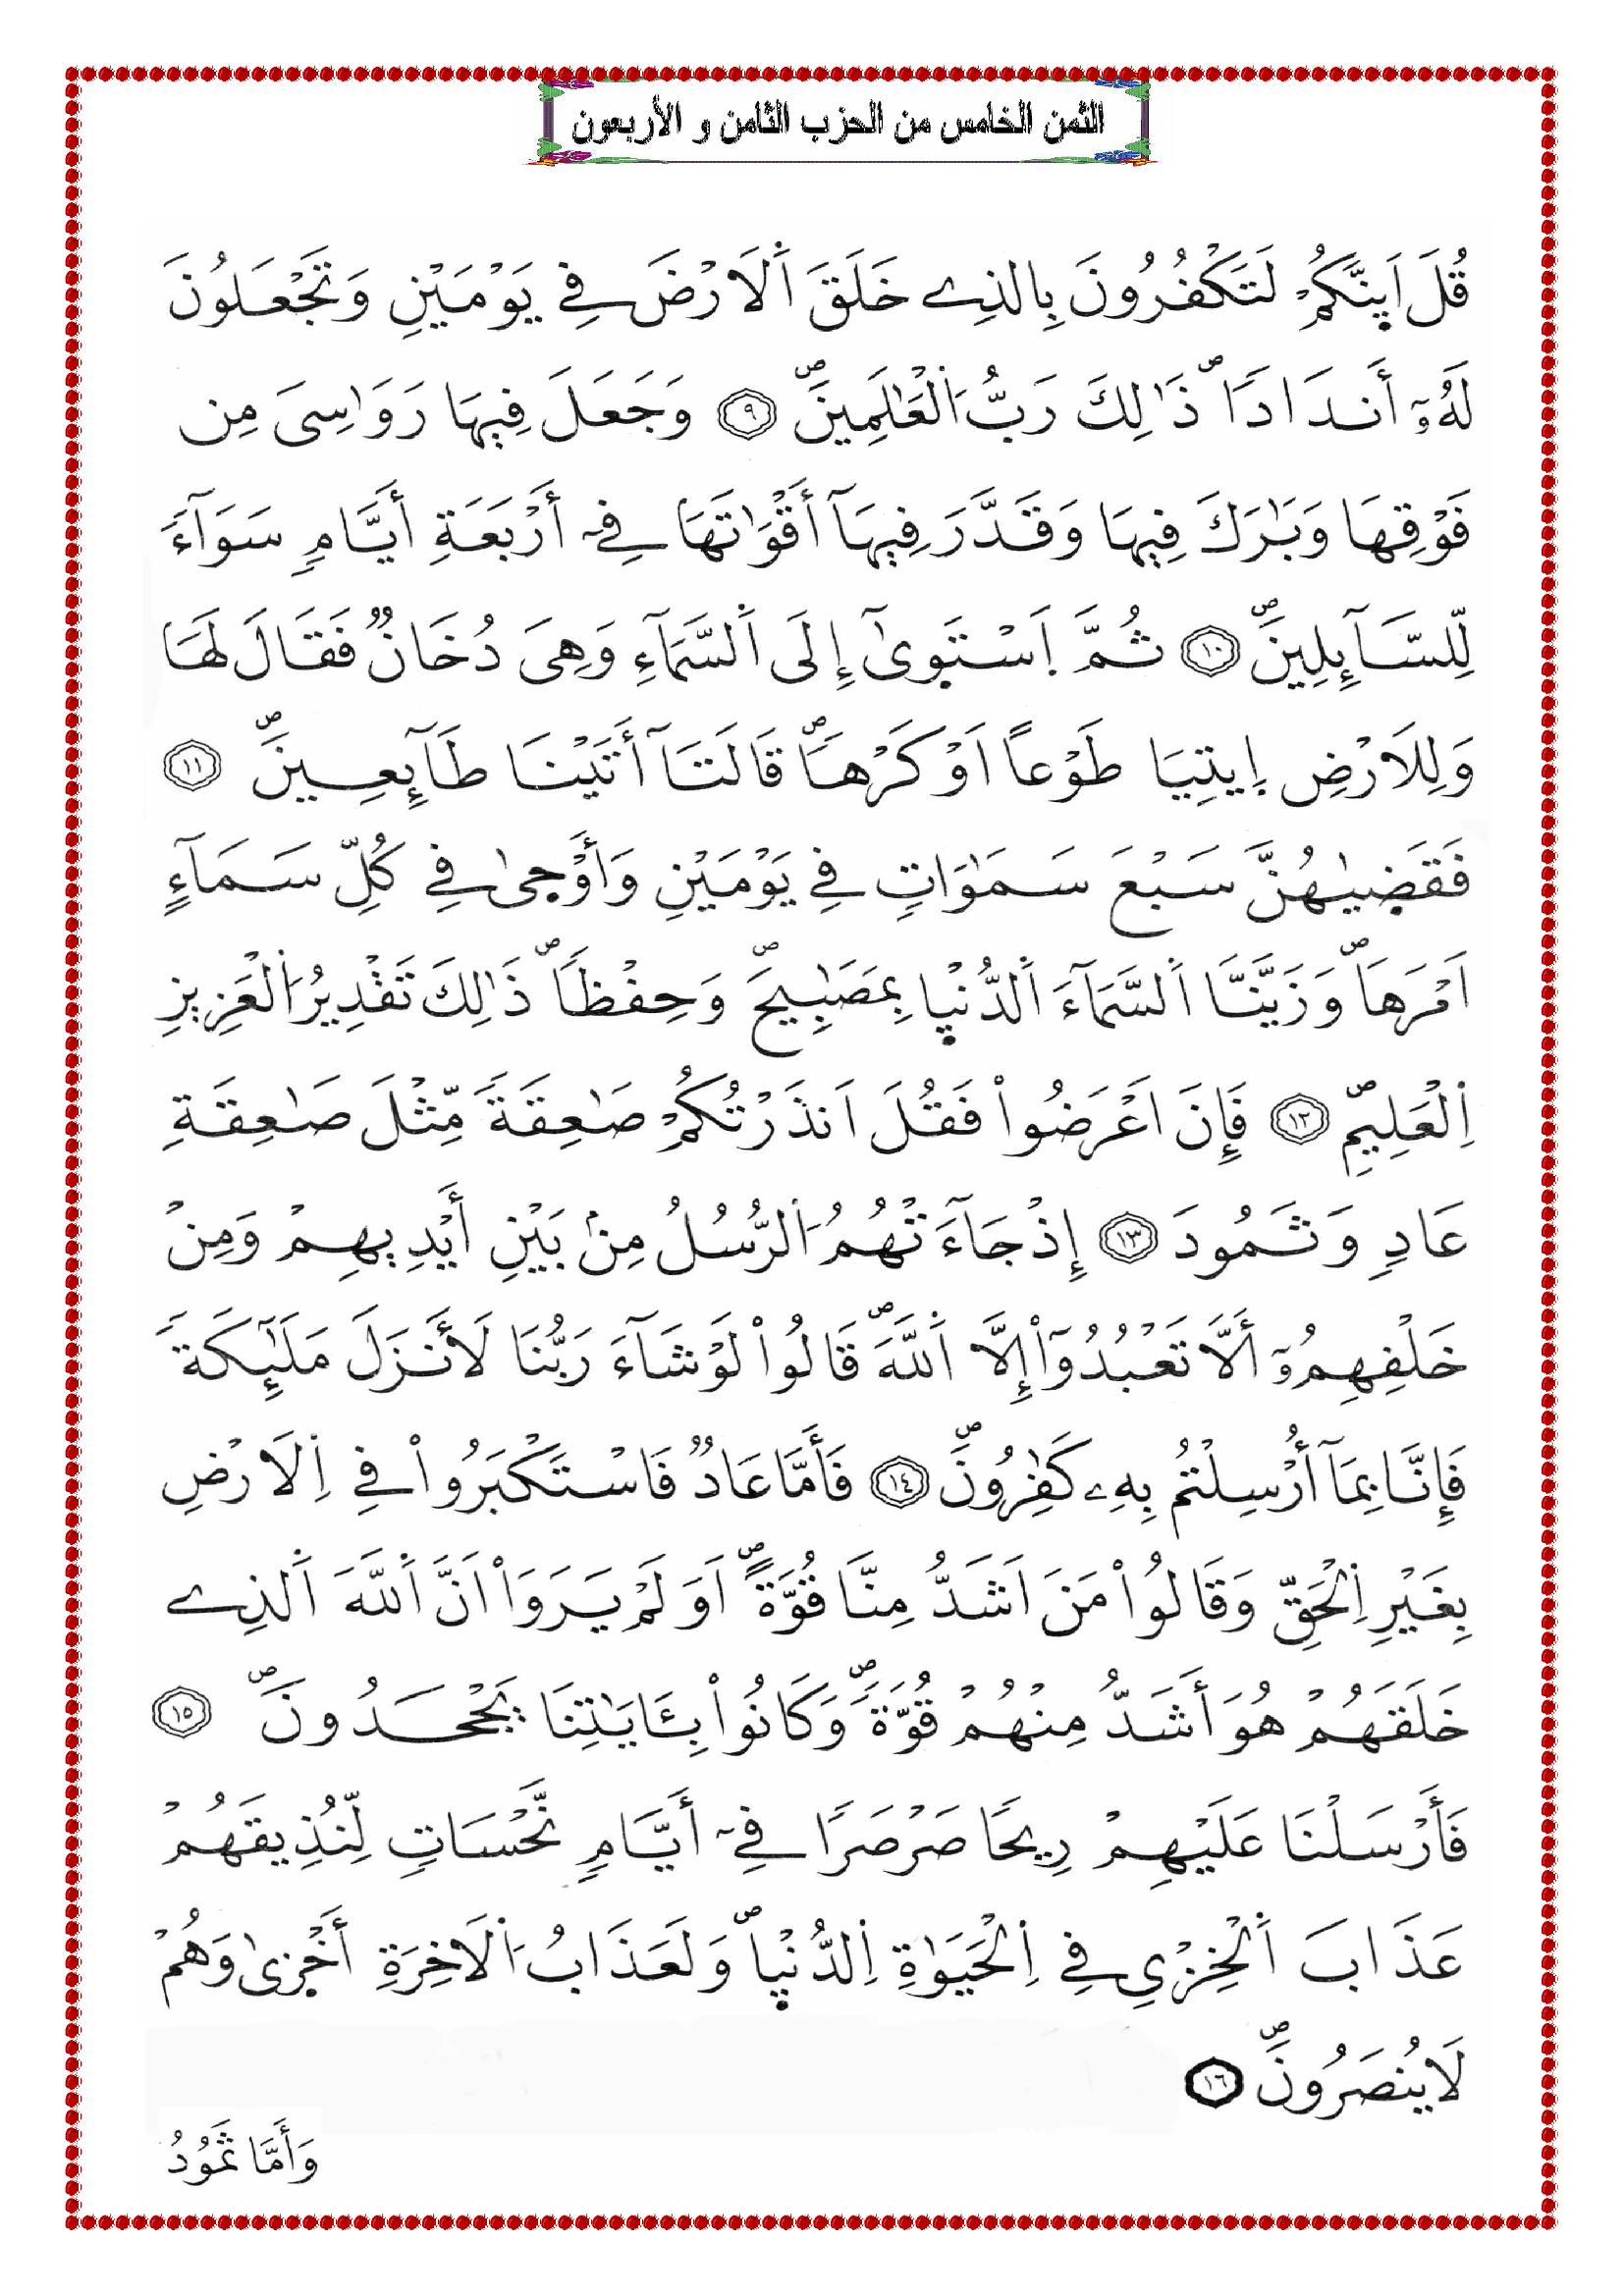 الثمن الخامس من الحزب الثامن و الأربعون
قُلَ اَىِٕنَّكُمْ لَتَكْفُرُونَ بِالذِے خَلَقَ اَ۬لَارْضَ فِے يَوْمَيْنِ وَتَجْعَلُونَ
لَهُۥٓ أَندَاداٗۖ ذَٰلِكَ رَبُّ اُ۬لْعَٰلَمِينَۖ ٩ وَجَعَلَ فِيهَا رَوَٰسِىَ مِن
فَوْقِهَا وَبَٰرَكَ فِيهَا وَقَدَّرَ فِيهَآ أَقْوَٰتَهَا فِےٓ أَرْبَعَةِ أَيَّامٖ سَوَآءٗ
لِّلسَّآئِلِينَۖ ١٠ ثُمَّ اَ۪سْتَو۪يٰٓ إِلَى اَ۬لسَّمَآءِ وَهِىَ دُخَانٞ فَقَالَ لَهَا
وَلِلَارْضِ اِ۪يتِيَا طَوْعاً اَوْ كَرْهاٗۖ قَالَتَآ أَتَيْنَا طَآئِعِينَۖ ١١
فَقَض۪يٰهُنَّ سَبْعَ سَمَٰوَاتٖ فِے يَوْمَيْنِ وَأَوْح۪يٰ فِے كُلِّ سَمَآءٍ
اَمْرَهَاۖ وَزَيَّنَّا اَ۬لسَّمَآءَ اَ۬لدُّنْي۪ا بِمَصَٰبِيحَۖ وَحِفْظاٗۖ ذَٰلِكَ تَقْدِيرُ اُ۬لْعَزِيزِ
اِ۬لْعَلِيمِۖ ١٢ فَإِنَ اَعْرَضُواْ فَقُلَ اَنذَرْتُكُمْ صَٰعِقَةٗ مِّثْلَ صَٰعِقَةِ
عَادٖ وَثَمُودَ ١٣ إِذْ جَآءَتْهُمُ اُ۬لرُّسُلُ مِنۢ بَيْنِ أَيْدِيهِمْ وَمِنْ
خَلْفِهِمُۥٓ أَلَّا تَعْبُدُوٓاْ إِلَّا اَ۬للَّهَۖ قَالُواْ لَوْ شَآءَ رَبُّنَا لَأَنزَلَ مَلَٰٓئِكَةٗ
فَإِنَّا بِمَآ أُرْسِلْتُم بِهِۦ كَٰفِرُونَۖ ١٤ فَأَمَّا عَادٞ فَاسْتَكْبَرُواْ فِے اِ۬لَارْضِ
بِغَيْرِ اِ۬لْحَقِّ وَقَالُواْ مَنَ اَشَدُّ مِنَّا قُوَّةًۖ اَوَ لَمْ يَرَوَاْ اَنَّ اَ۬للَّهَ اَ۬لذِے
خَلَقَهُمْ هُوَ أَشَدُّ مِنْهُمْ قُوَّةٗۖ وَكَانُواْ بِـَٔايَٰتِنَا يَجْحَدُونَۖ ١٥
فَأَرْسَلْنَا عَلَيْهِمْ رِيحاٗ صَرْصَراٗ فِےٓ أَيَّامٖ نَّحْسَاتٖ لِّنُذِيقَهُمْ
عَذَابَ اَ۬لْخِزْيِ فِے اِ۬لْحَيَوٰةِ اِ۬لدُّنْي۪اۖ وَلَعَذَابُ اُ۬لَاخِرَةِ أَخْز۪يٰ وَهُمْ
لَا يُنصَرُونَۖ ١٦
وَأَمَّا ثَمُودُ